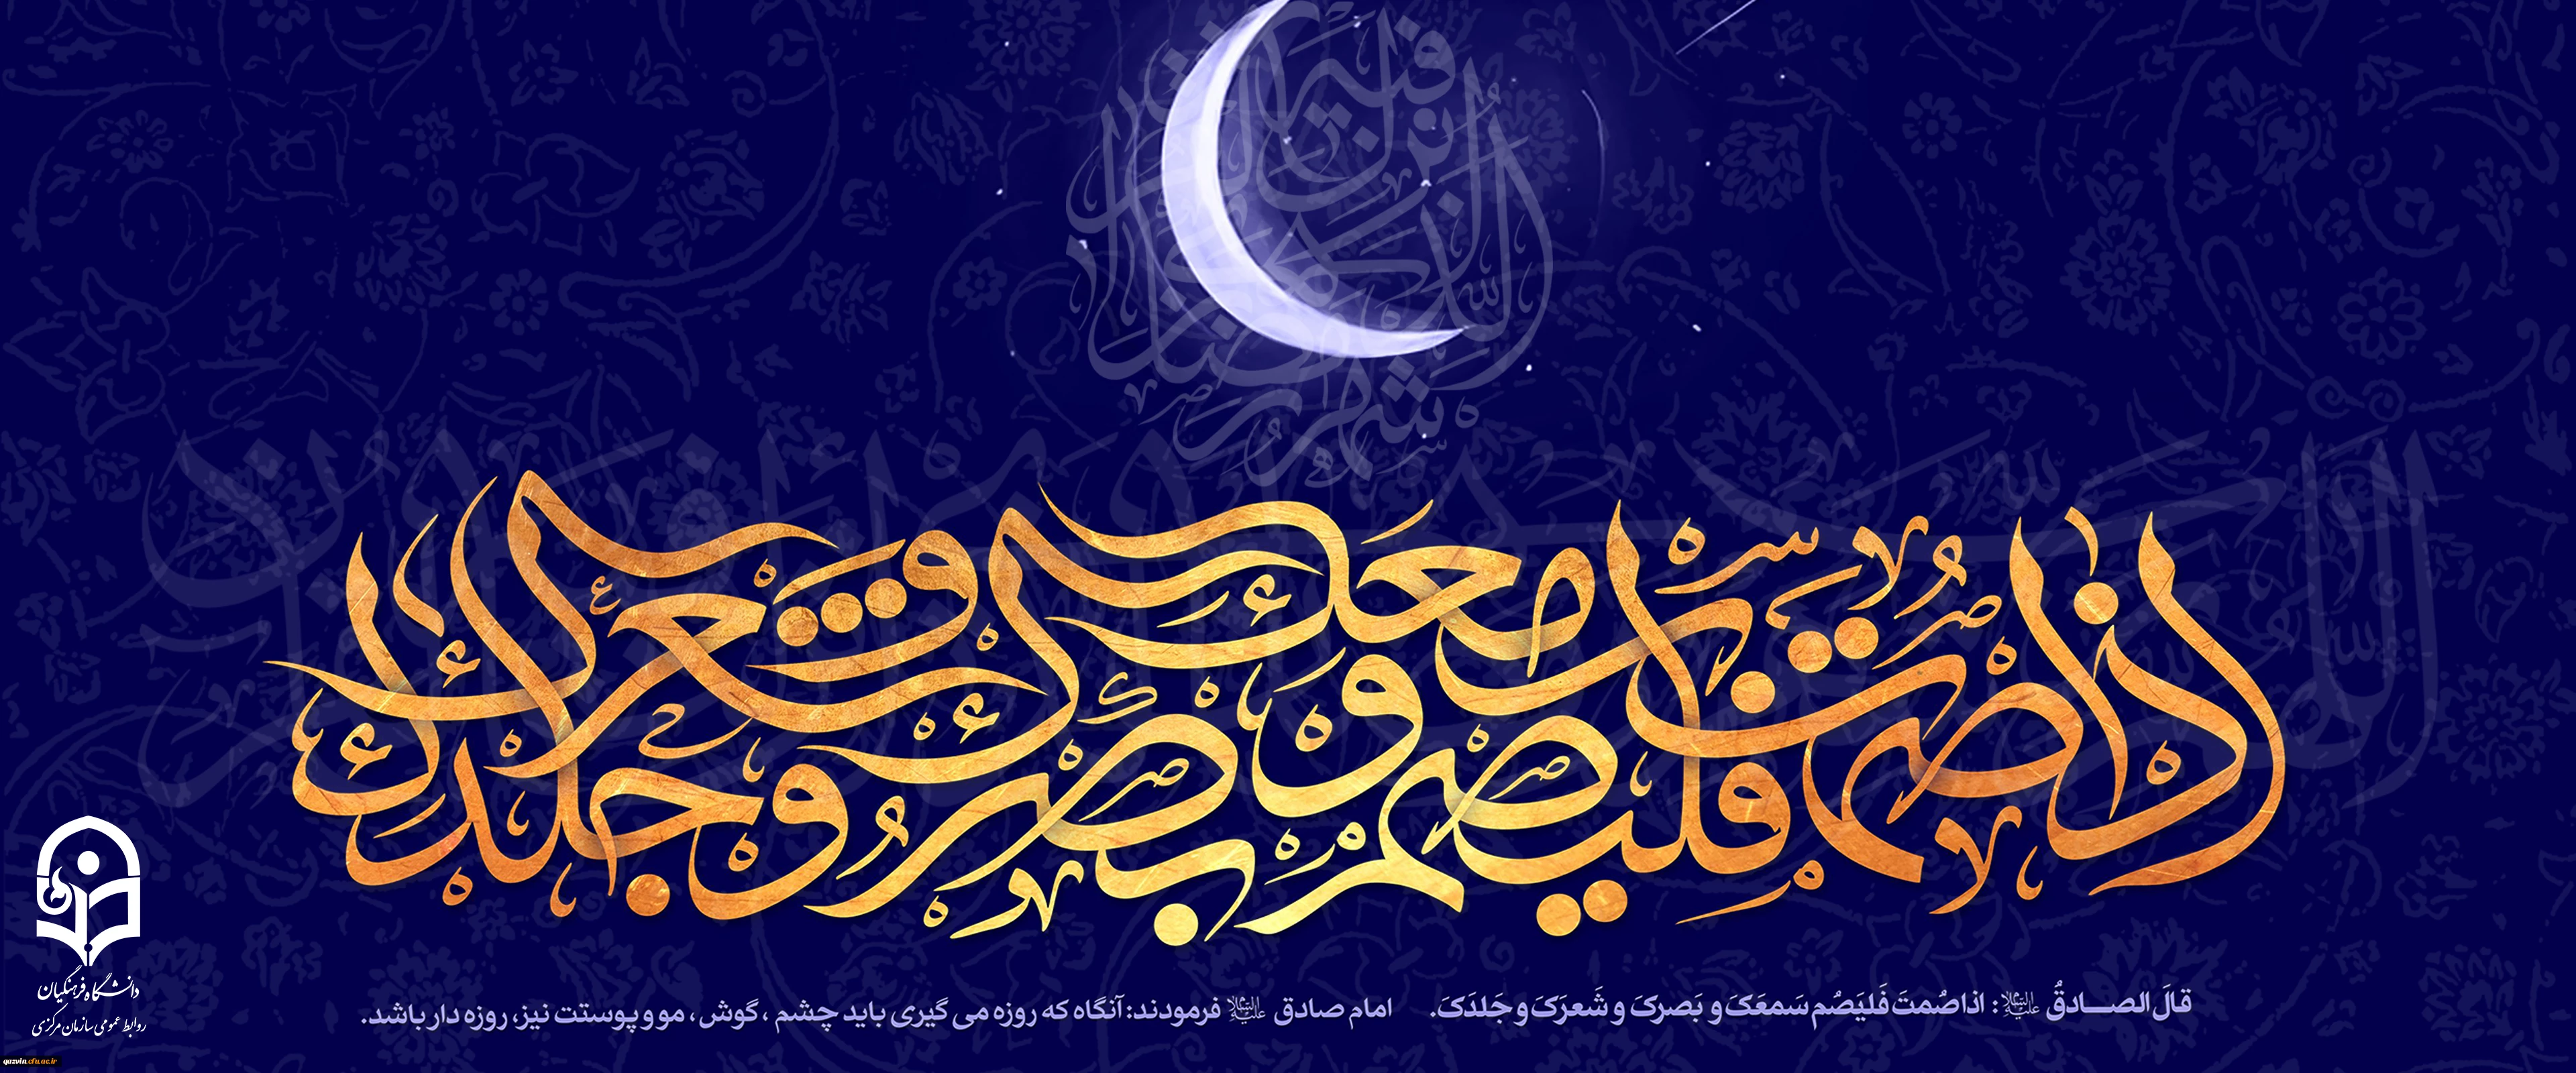 شهر رمضان الذی انزل فیه القرآن
اذا صمت فلیصم سمعک و بصرک و شعرک و جلدک
قالَ الصـادقُ علیه‌السلام: اذا صُمتَ فَلیَصُم سَمعَکَ و بَصرکَ و شَعرَکَ و جَلدَکَ.
امام صادق علیه‌السلام فرمودند: آنگاه که روزه می گیری باید چشم ، گوش، مو و پوستت نیز، روزه دار باشد.
دانشگاه فرهنگیان
روابط عمومی سازمان مرکزی
qazvin.cfu.ac.ir